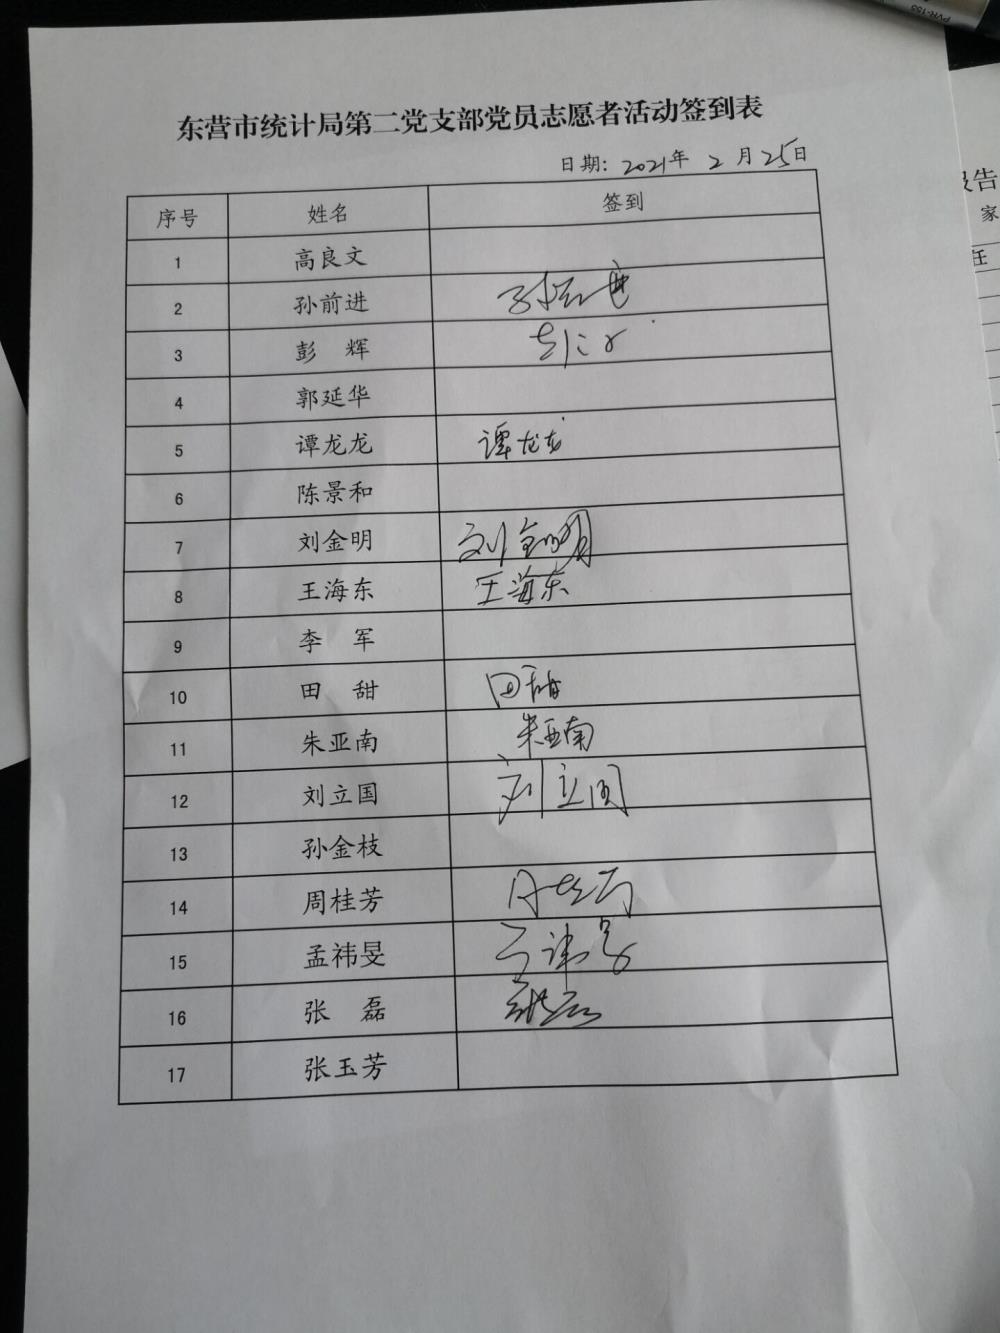 PVR-155
东营市统计局第二党支部党员志愿者活动签到表
日期: 2021年 2 月 25日
序号 姓名 签到
1 高良文
2 孙前进
3 彭 辉
4 郭延华
5 谭龙龙 谭龙龙
6 陈景和
7 刘金明 刘金明
8 王海东 王海东
9 李 军
10 田 甜 田甜
11 朱亚南 朱亚南
12 刘立国 刘立国
13 孙金枝
14 周桂芳
15 孟祎旻
16 张 磊
17 张玉芳
报告
家
任